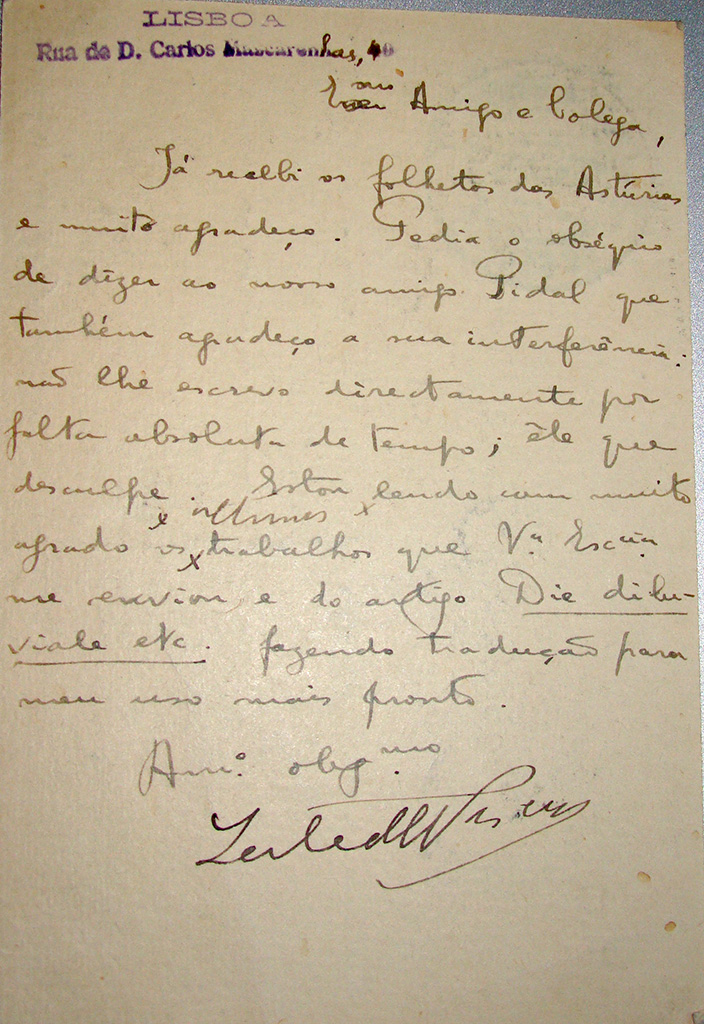 LISBOA
Rua de D. Carlos Mascarenhas, 40
Amigo e Colega,
Já recebi os folhetos das Astúrias
e muito agradeço. Pedia o obséquio
de dizer ao nosso amigo Pidal que
também agradeço a sua interferência:
não lhe escrevo directamente por
falta absoluta de tempo; êle que
desculpe. Estou lendo com muito
últimos
agrado os trabalhos que V.ª Escia
me enviou, e do artigo Die dilu-
viale etc. fazendo tradução para
meu uso mais pronto.
Am.º obg.mo